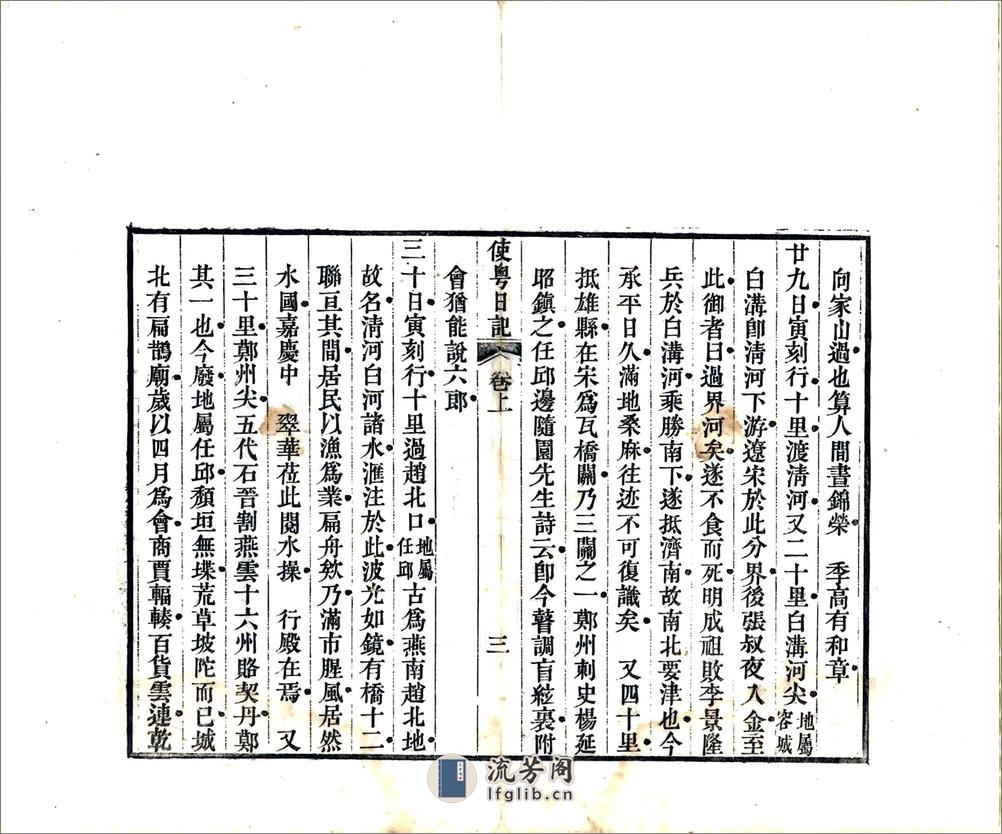 向家山過也算人間晝錦榮　季高有和章
廿九日寅刻行十里渡淸河又二十里白溝河尖地屬容城
白溝卽淸河下游遼宋於此分界後張叔夜入金至
此御者曰過界河矣遂不食而死明成祖敗李景隆
兵於白溝河乘勝南下遂抵濟南故南北要津也今
承平日久滿地桑麻往迹不可復識矣　又四十里
抵雄縣在宋爲瓦橋關乃三關之一鄭州刺史楊延
昭鎭之任邱邊隨園先生詩云卽今瞽調盲絃裏附
會猶能說六郎
使粵日記　卷上　三
三十日寅刻行十里過趙北口地屬任邱古爲燕南趙北地
故名淸河白河諸水滙注於此波光如鏡有橋十二
聯亘其間居民以漁爲業扁舟欸乃滿市腥風居然
水國嘉慶中　翠華莅此閱水操　行殿在焉　又
三十里鄭州尖五代石晉割燕雲十六州賂契丹鄭
其一也今廢地屬任邱頹垣無堞荒草坡陀而已城
北有扁鵲廟歲以四月爲會商賈輻輳百貨雲連乾
流芳阁
lfglib.cn